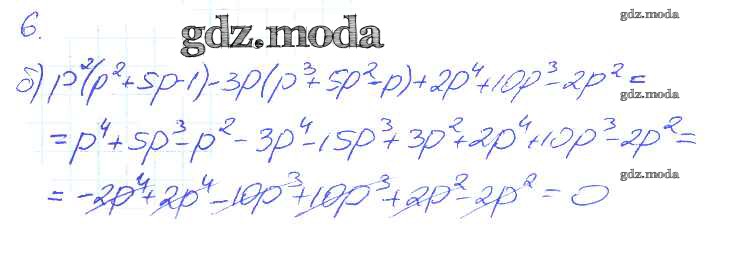 6.
gdz.moda
gdz.moda
б) p²(p²+5p-1)-3p(p³+5p²-p)+2p⁴+10p³-2p²=
gdz.moda
=p⁴+5p³-p²-3p⁴-15p³+3p²+2p⁴+10p³-2p²=
gdz.moda
=-2p⁴+2p⁴-10p³+10p³+2p²-2p²=0